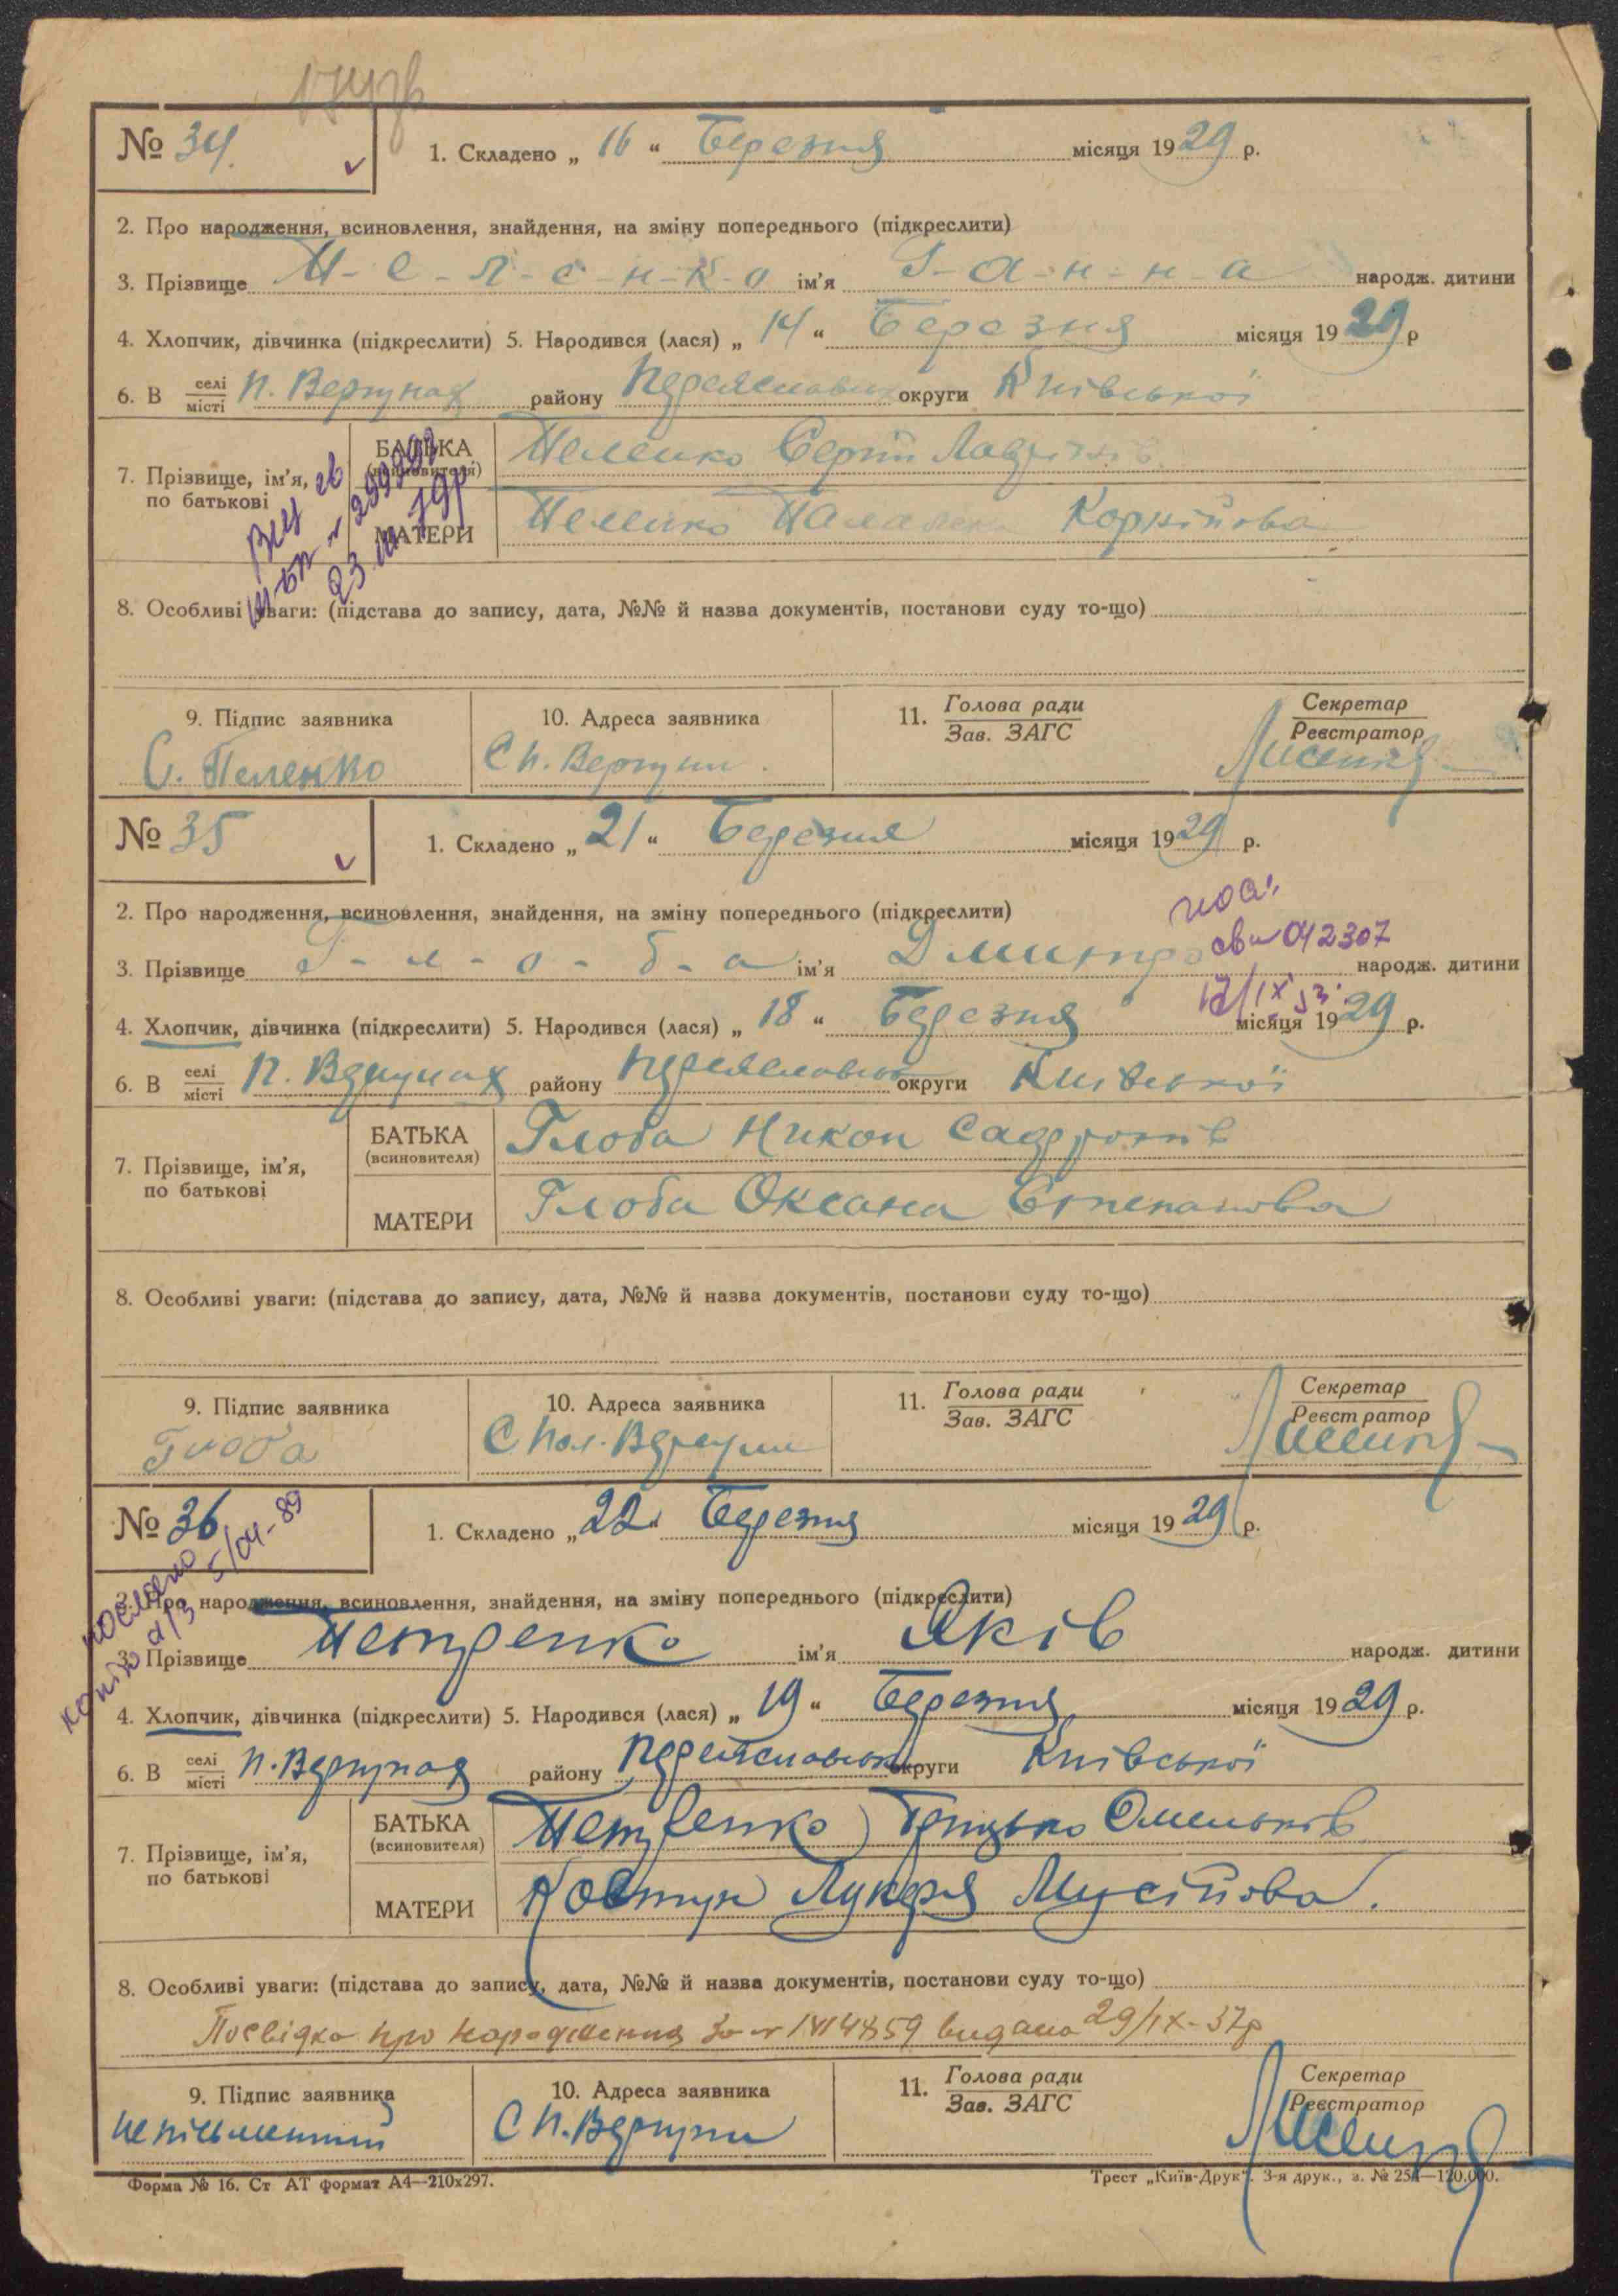 № 34.
1. Складено „ 16 “ Березня місяця 1929 р.
2. Про народження, всиновлення, знайдення, на зміну попереднього (підкреслити)
3. Прізвище П-е-л-е-н-к-о ім'я Г-а-н-н-а народж. дитини
4. Хлопчик, дівчинка (підкреслити) 5. Народився (лася) „ 14 “ Березня місяця 1929 р
6. В селі місті П. Вергунах району Переяславськ округи Київської
7. Прізвище, ім'я, по батькові
БАТЬКА (всиновителя) Пеленко Сергій
МАТЕРИ Пеленко Корнійова
8. Особливі уваги: (підстава до запису, дата, №№ й назва документів, постанови суду то-що)
9. Підпис заявника 10. Адреса заявника 11. Голова ради Зав. ЗАГС Секретар Реєстратор
С. Пеленко С П. Вергуни. Лисенко
№ 35
1. Складено „ 21 “ Березня місяця 1929 р.
2. Про народження, всиновлення, знайдення, на зміну попереднього (підкреслити)
св 042307
3. Прізвище Г-л-о-б-а ім'я Дмитро народж. дитини
4. Хлопчик, дівчинка (підкреслити) 5. Народився (лася) „ 18 “ Березня місяця 1929 р.
6. В селі місті П. Вергунах району Переяславськ округи Київської
7. Прізвище, ім'я, по батькові
БАТЬКА (всиновителя) Глоба Никон
МАТЕРИ Глоба Оксана Степанова
8. Особливі уваги: (підстава до запису, дата, №№ й назва документів, постанови суду то-що)
9. Підпис заявника 10. Адреса заявника 11. Голова ради Зав. ЗАГС Секретар Реєстратор
Глоба С Пол. Вергуни Лисенко
№ 36
1. Складено „ 22 “ Березня місяця 1929 р.
послано 5/04-89
2. Про народження, всиновлення, знайдення, на зміну попереднього (підкреслити)
копію а/з
3. Прізвище Петренко ім'я Яків народж. дитини
4. Хлопчик, дівчинка (підкреслити) 5. Народився (лася) „ 19 “ Березня місяця 1929 р.
6. В селі місті П. Вергунах району Переяславськ округи Київської
7. Прізвище, ім'я, по батькові
БАТЬКА (всиновителя) Петренко Грицько Омельків
МАТЕРИ Ковтун Лукеря Мусійова.
8. Особливі уваги: (підстава до запису, дата, №№ й назва документів, постанови суду то-що)
Посвідка про народження за № видано 29/IX-37р
9. Підпис заявника 10. Адреса заявника 11. Голова ради Зав. ЗАГС Секретар Реєстратор
неписьменний С П. Вергуни Лисенко
Форма № 16. Ст АТ формат А4—210х297.
Трест „Київ-Друк“. 3-я друк., з. № 254—120.000.